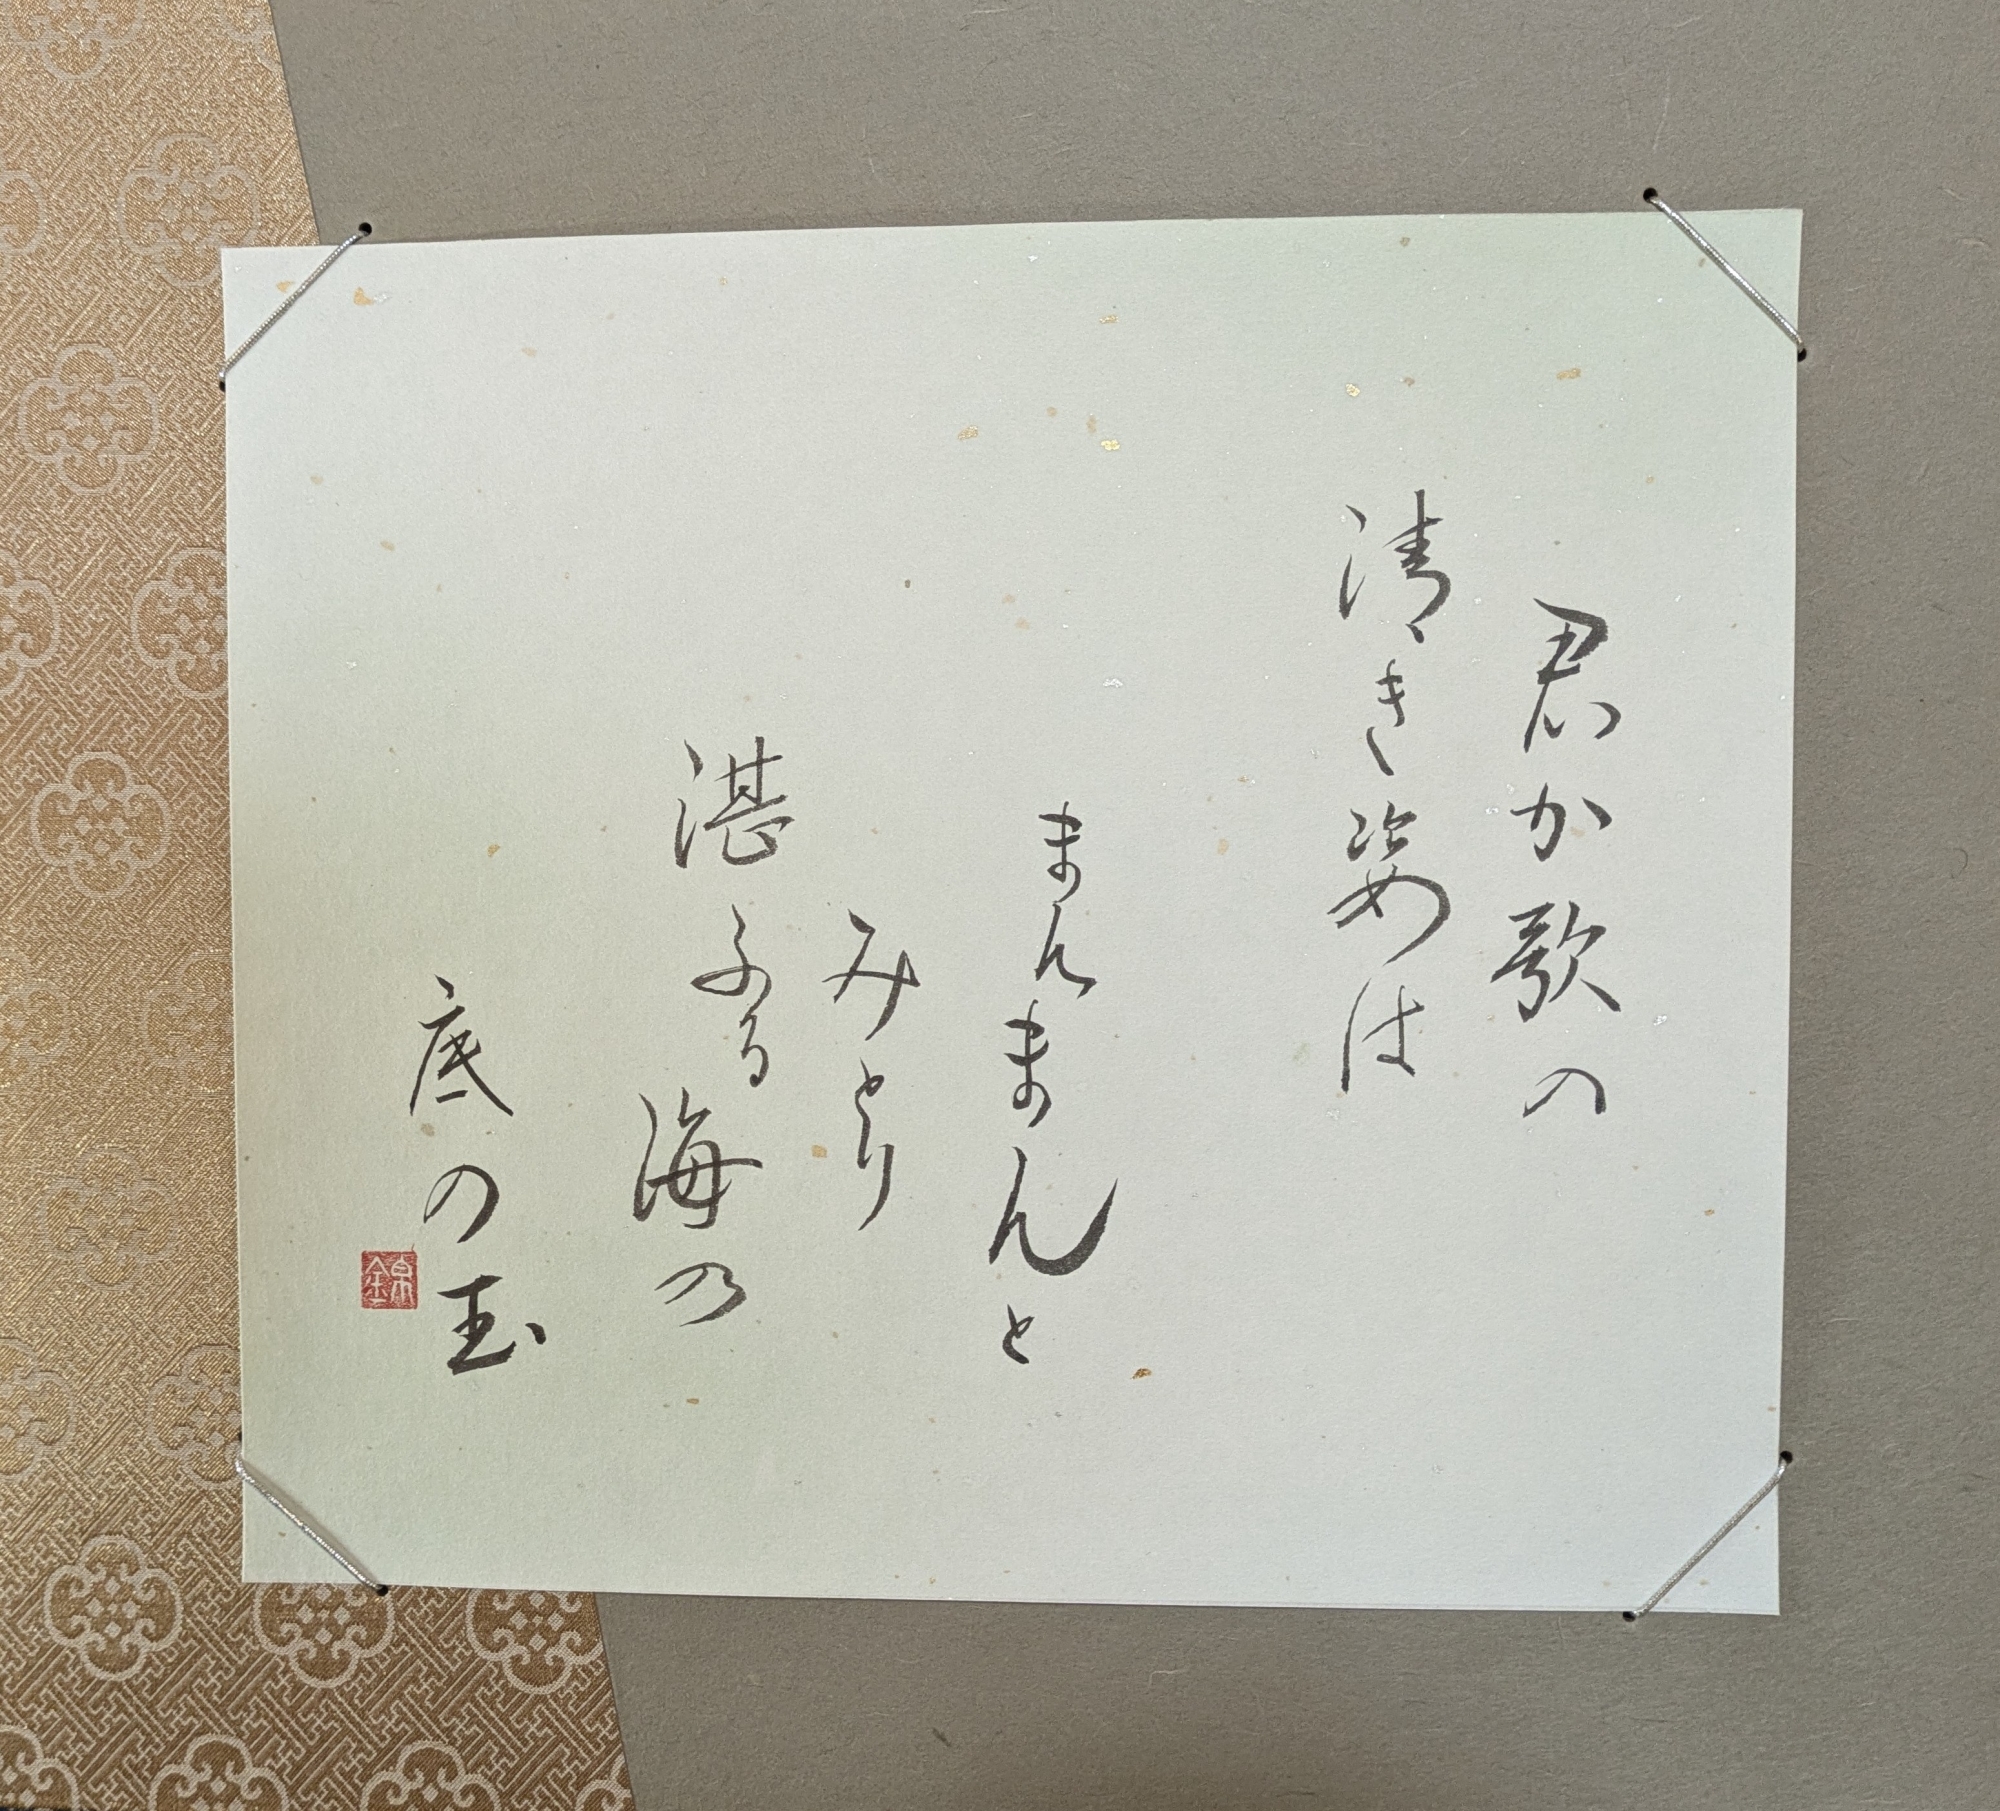 君か歌の
清き姿は
まんまんと
みとり
湛ふる
海の
底の玉
錦